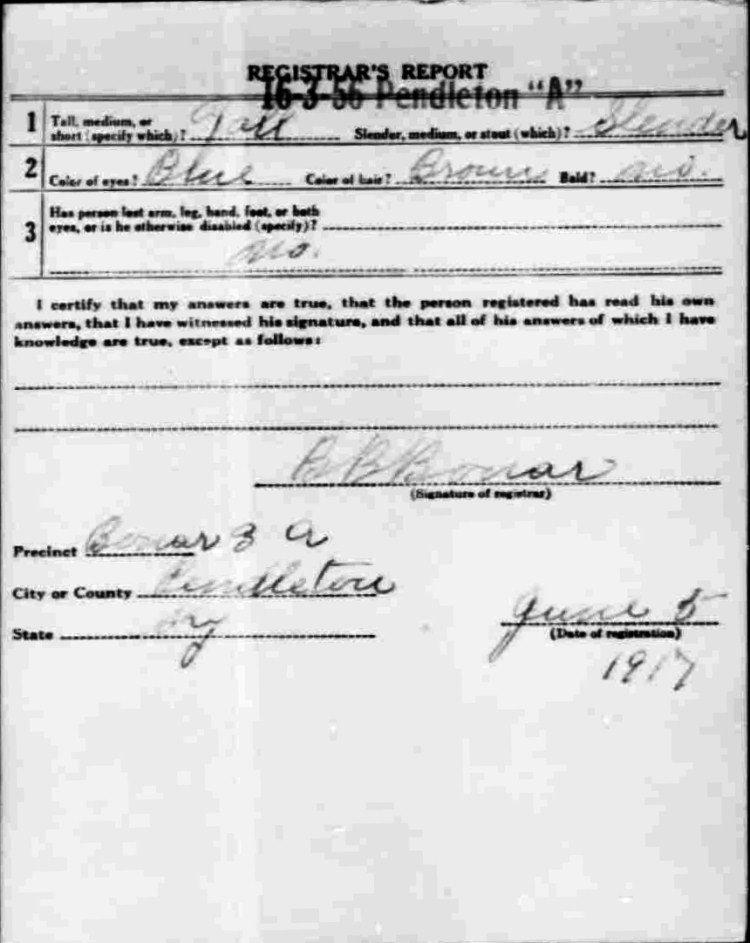 REGISTRAR'S REPORT
16-3-56 Pendleton "A"
1 Tall, medium, or short (specify which)? Tall Slender, medium, or stout (which)? Slender
2 Color of eyes? Blue Color of hair? Brown Bald? no.
3 Has person lost arm, leg, hand, foot, or both
eyes, or is he otherwise disabled (specify)?
no.
I certify that my answers are true, that the person registered has read his own
answers, that I have witnessed his signature, and that all of his answers of which I have
knowledge are true, except as follows:
B B Bonar
(Signature of registrar)
Precinct Bonar 3 A
City or County Pendleton
State Ky
June 5
(Date of registration)
1917